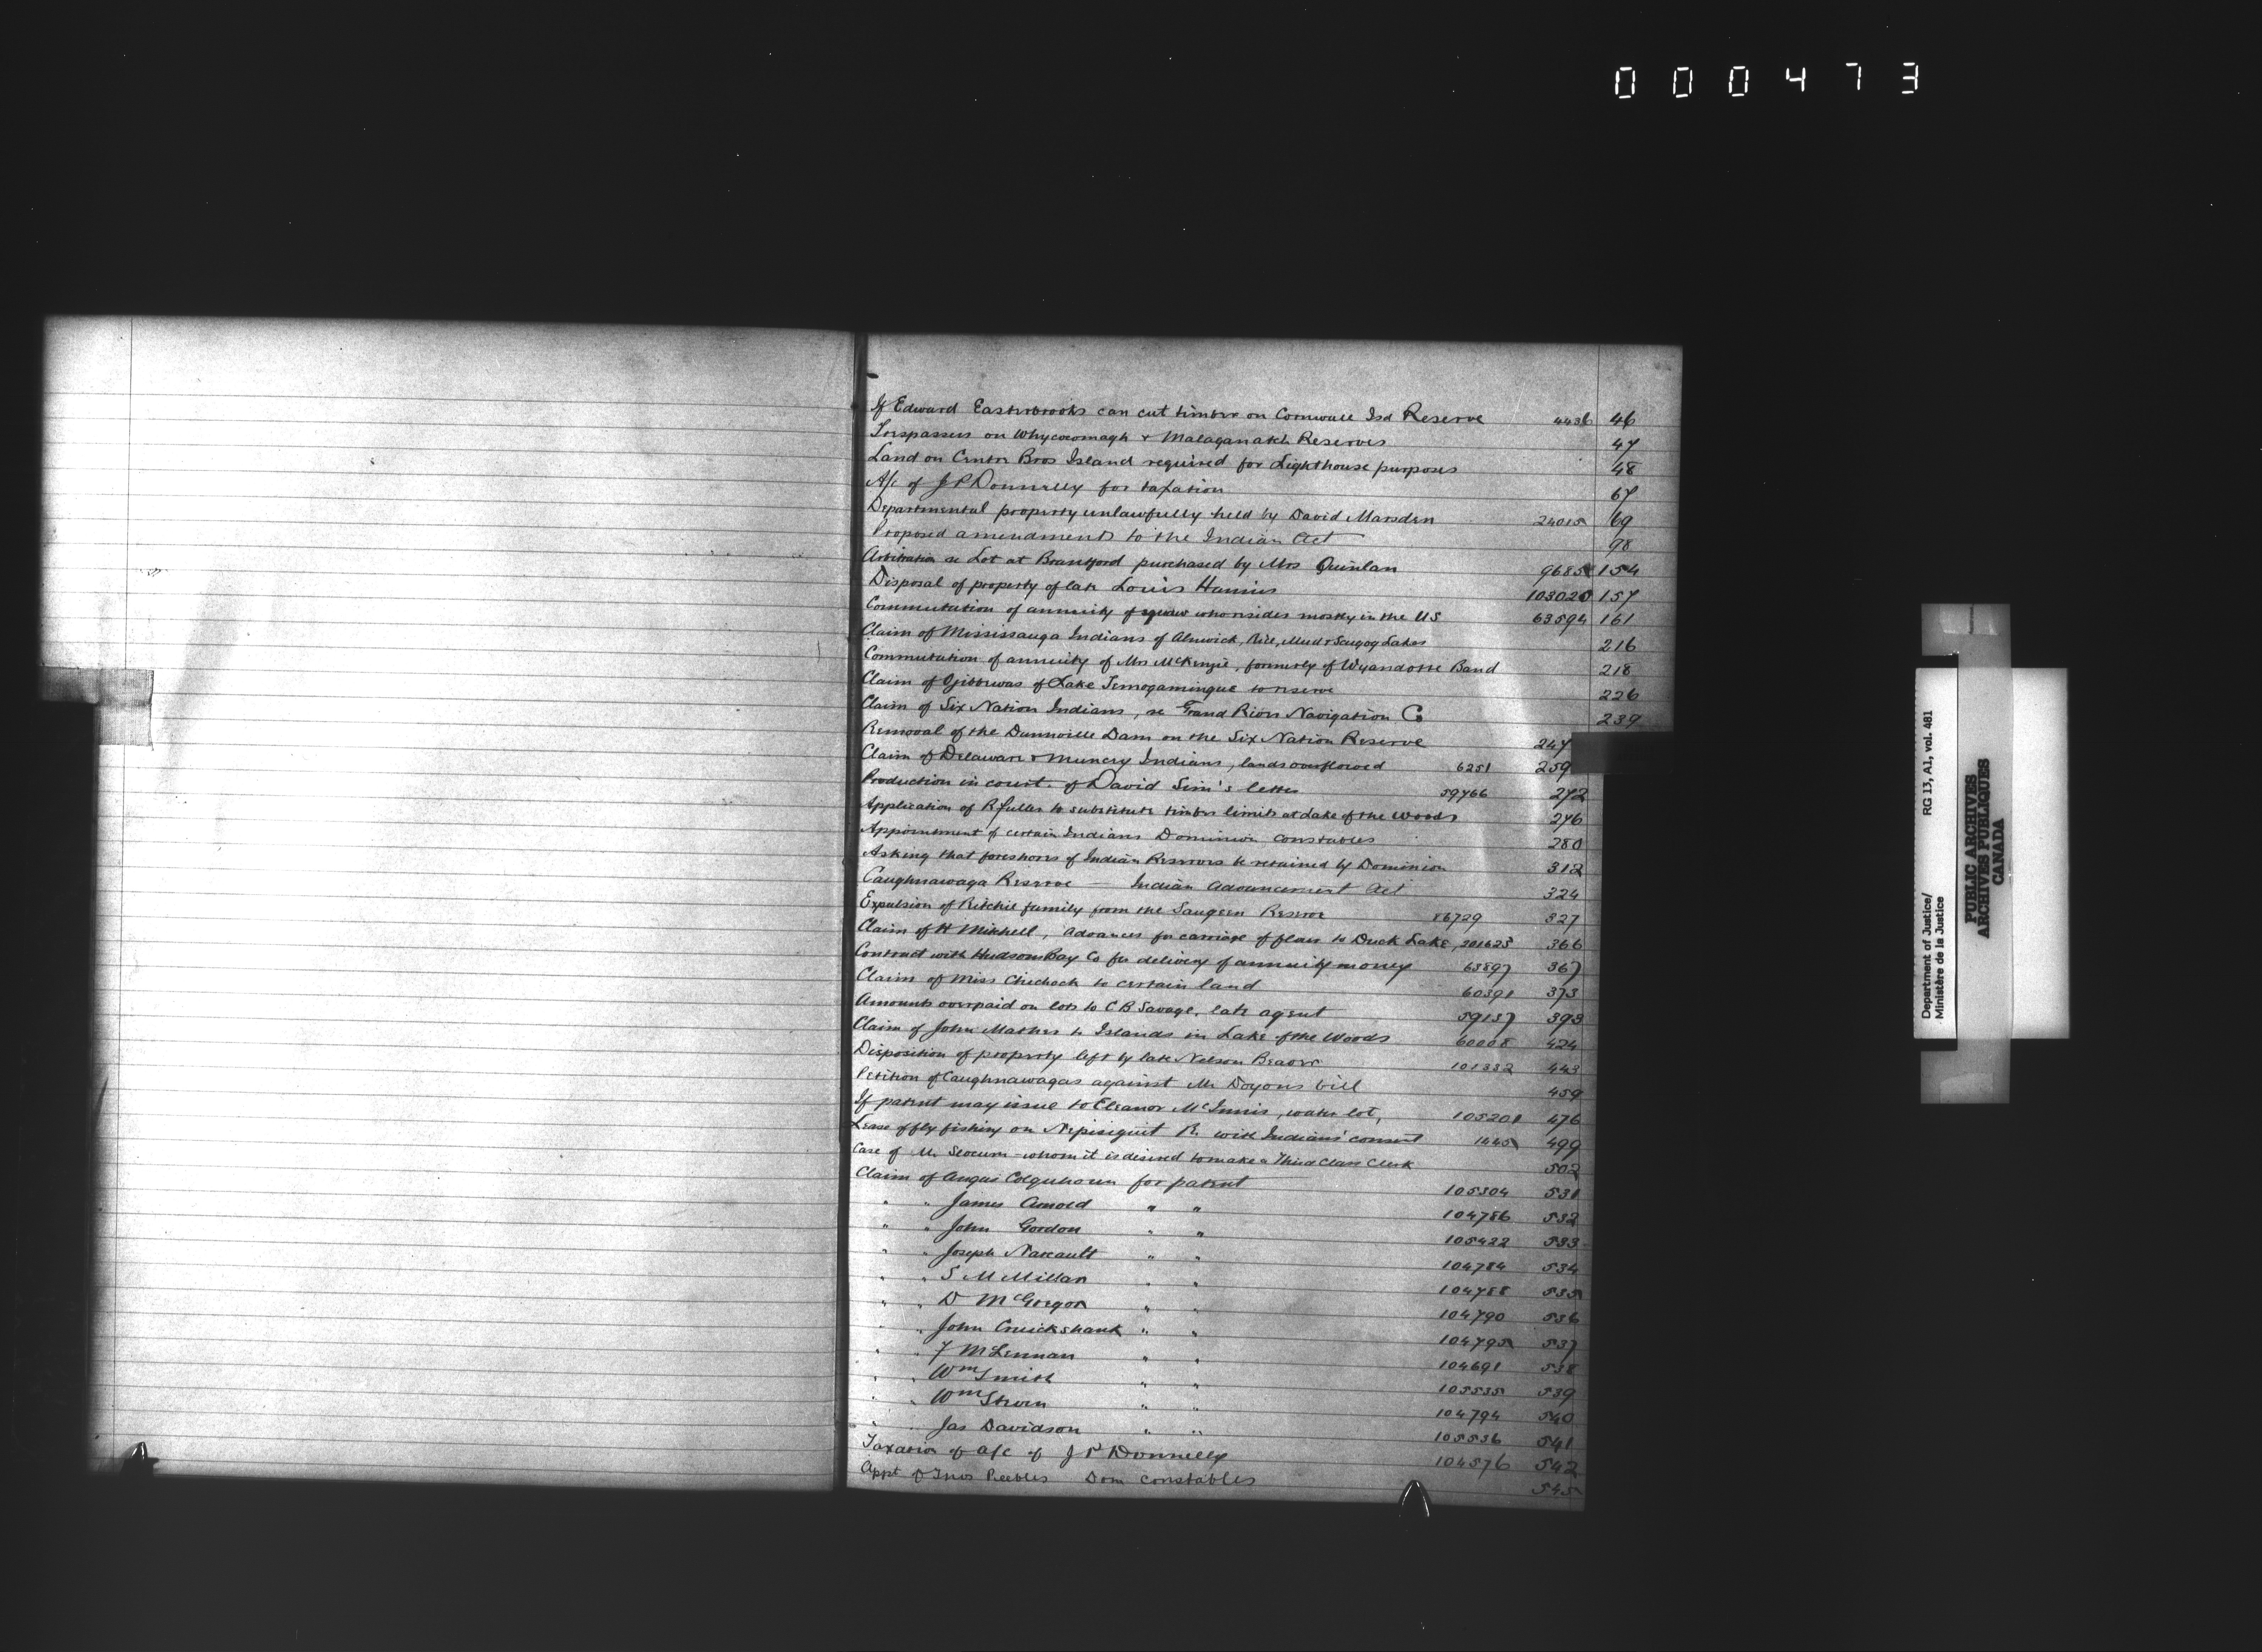 000473
If Edward Easterbrooks can cut timber on Cornwall Isd Reserve 4436 46
Trespassers on Whycocomagh & Malaganatch Reserves 47
Land on Centre Bros Island required for Lighthouse purposes 48
A/c of J P Donnelly for taxation 67
Departmental property unlawfully held by David Marsden 24015 69
Proposed amendments to the Indian Act 98
Arbitration re Lot at Brantford purchased by Mrs Quinlan 96858 154
Disposal of property of late Louis 103020 157
Commutation of annuity of squaw who resides mostly in the US 63594 161
Claim of Mississauga Indians of Alnwick, Rice, Mud & Scugog Lakes 216
Commutation of annuity of Mrs McKenzie, formerly of Wyandotte Band 218
Claim of Ojibbewas of Lake Temogamingue to reserve 226
Claim of Six Nation Indians, re Grand River Navigation Co 239
Removal of the Dunnville Dam on the Six Nation Reserve 247
Claim of Delaware & Muncey Indians, lands overflowed 6251 259
Production in court of David Sim's letter 59766 272
Application of R Fuller to substitute timber limits at Lake of the Woods 276
Appointment of certain Indians Dominion Constables 280
Asking that foreshores of Indian Reserves be retained by Dominion 312
Caughnawaga Reserve — Indian Advancement Act 324
Expulsion of Ritchie family from the Saugeen Reserve 86729 327
Claim of H Mitchell, Advances for carriage of flour to Duck Lake, 201625 366
Contract with Hudsons Bay Co for delivery of annuity money 63897 367
Claim of Miss Chichock to certain land 60391 373
Amounts overpaid on lots to C B Savage, late agent 59157 393
Claim of John Mather to Islands in Lake of the Woods 60008 424
Disposition of property left by late Nelson Beaver 101332 443
Petition of Caughnawagas against Mr Doyons bill 459
If patent may issue to Eleanor McInnis, water lot, 105201 476
Lease of fly fishing on Nepisiguit R. with Indians' consent 1445 499
Case of Mr Slocum - whom it is desired to make a Third Class Clerk 502
Claim of Angus Colquhoun for patent 105304 531
" " James Arnold " " 104786 532
" " John Gordon " " 105422 533
" " Joseph " " 104784 534
" " S McMillan " " 104788 535
" " D McGregor " " 104790 536
" " John Cruickshank " " 104795 537
" " F McLennan " " 104691 538
" " Wm Smith " " 105535 539
" " Wm " " 104794 540
" " Jas Davidson " " 105536 541
Taxation of a/c of J P Donnelly 104576 542
Appt of Thos Peebles Dom constables 545
Department of Justice/ RG 13, A1, vol. 481
Ministère de la Justice
PUBLIC ARCHIVES
ARCHIVES PUBLIQUES
CANADA